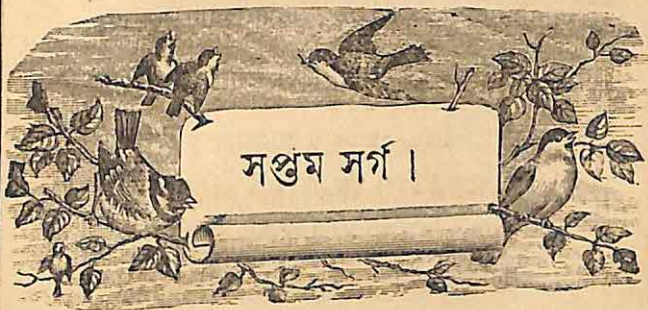 সপ্তম সর্গ।